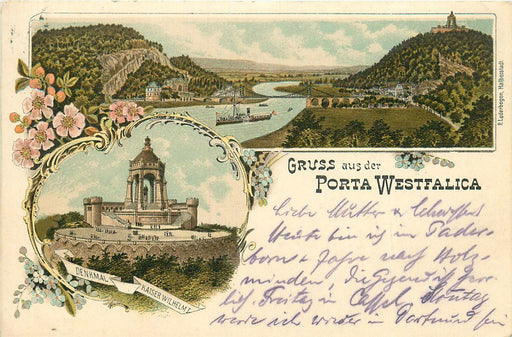 GRUSS aus der
PORTA WESTFALICA
Liebe Mutter u. Schwester
Heute bin ich in Pader-
born u. fahre nach Holz-
minden, die Gegend ist
lich, Freitag in Cassel, Montag
werde ich wieder in Dortmund sein
DENKMAL
KAISER WILHELM I.
P. Lederbogen, Halberstadt.